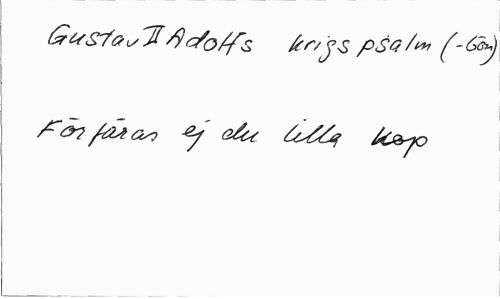 Gustav II Adolfs krigspsalm (-bön)
Förfäras ej du lilla hop